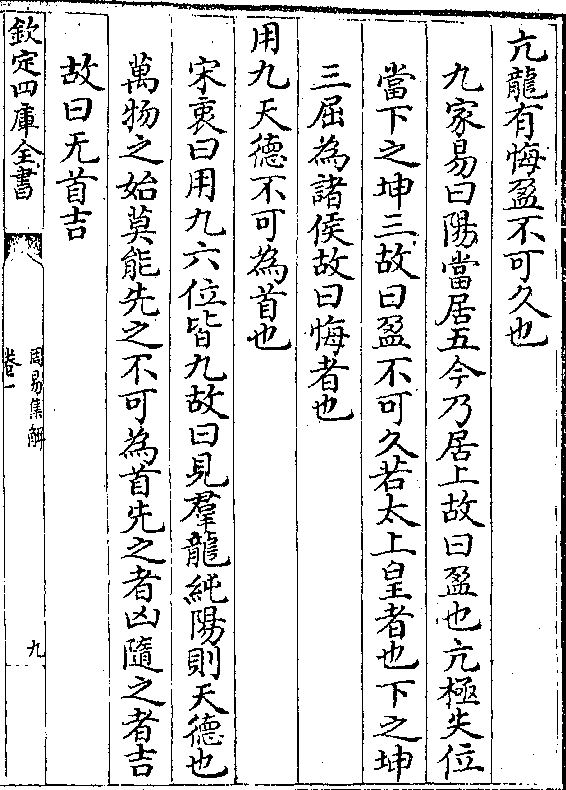 亢龍有悔盈不可久也
九家易曰陽當居五今乃居上故曰盈也亢極失位
當下之坤三故曰盈不可久若太上皇者也下之坤
三屈為諸侯故曰悔者也
用九天德不可為首也
宋衷曰用九六位皆九故曰見羣龍純陽則天德也
萬物之始莫能先之不可為首先之者凶隨之者吉
故曰无首吉
欽定四庫全書
周易集解
卷一
九